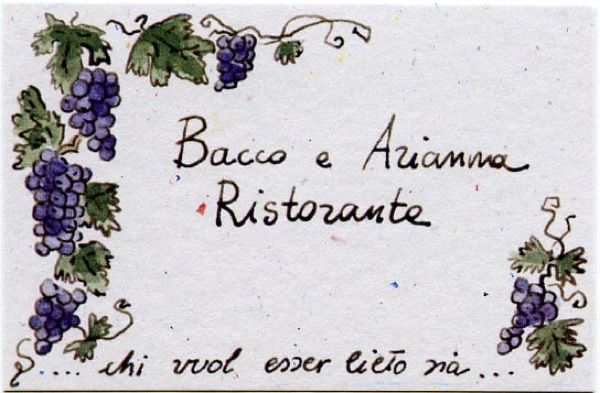 Bacco e Arianna
Ristorante
... chi vuol esser lieto sia...